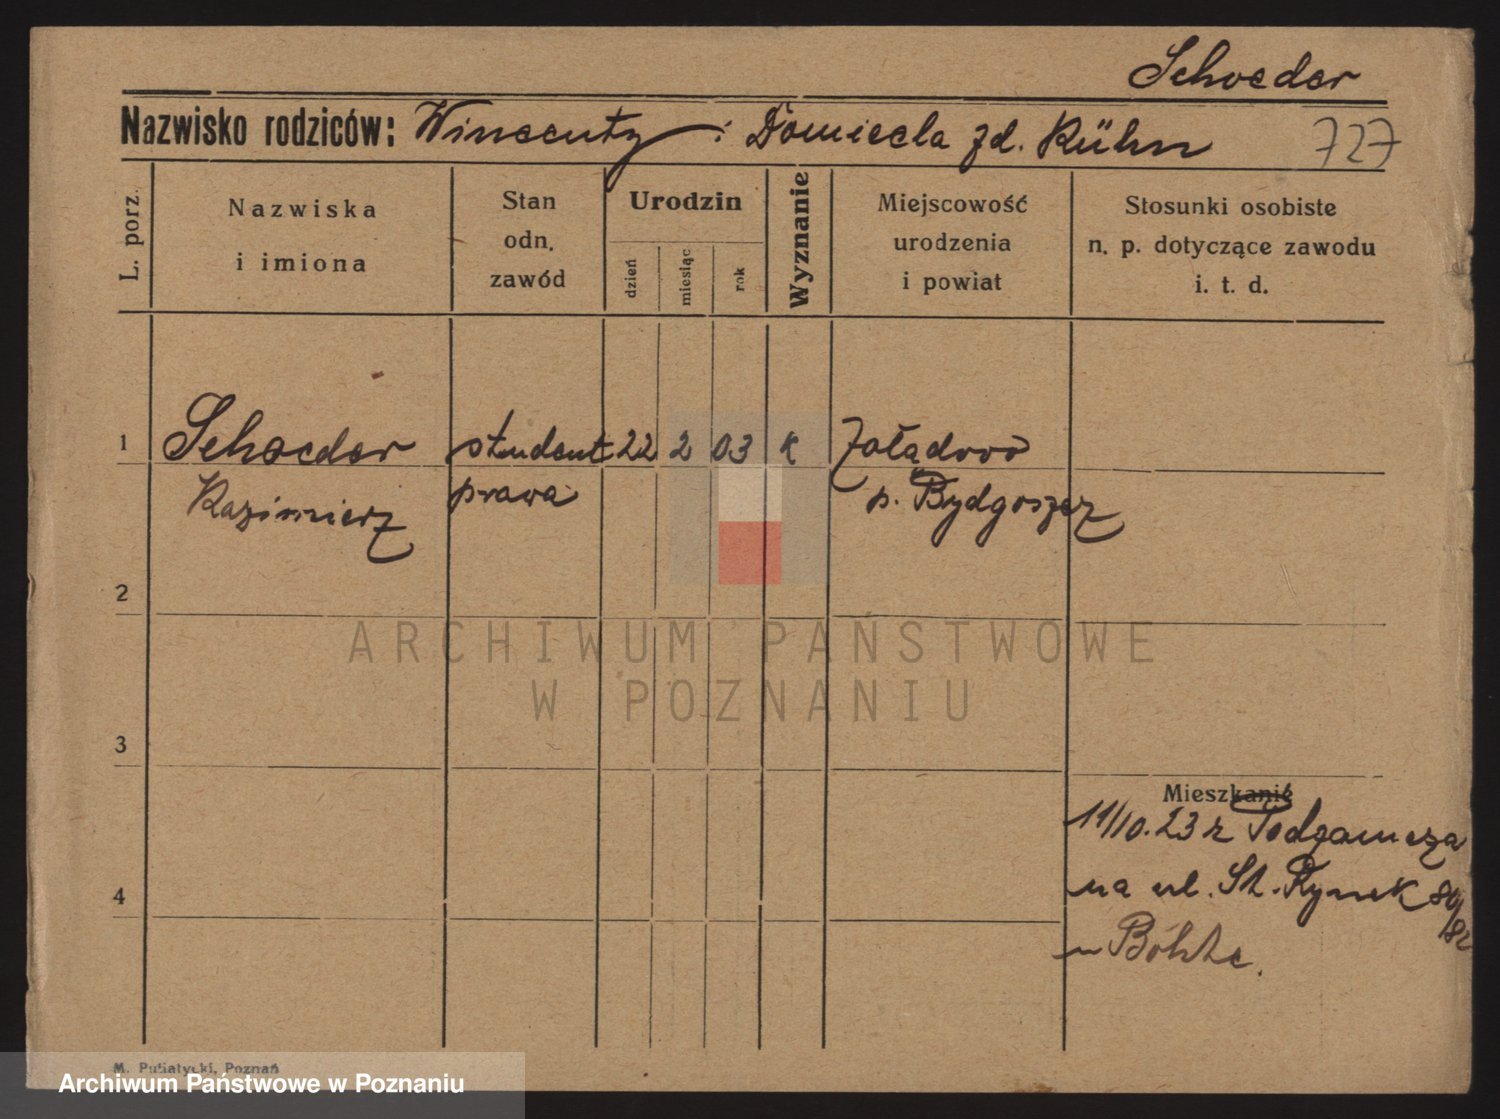 Schoeder
Nazwisko rodziców: Wincenty i Domicela zd. Kühn 727
L. porz.
Nazwiska
i imiona
Stan
odn.
zawód
Urodzin
dzień
miesiąc
rok
Wyznanie
Miejscowość
urodzenia
i powiat
Stosunki osobiste
n. p. dotyczące zawodu
i. t. d.
1 Schoeder student 22 2 03 k Żołądowo
Kazimierz prawa p. Bydgoszcz
2
ARCHIWUM PAŃSTWOWE
W POZNANIU
3
Mieszkanie
11/10.23 z
4
na ul. St. Rynek 80/
82
u
M. Putiatycki, Poznań
Archiwum Państwowe w Poznaniu